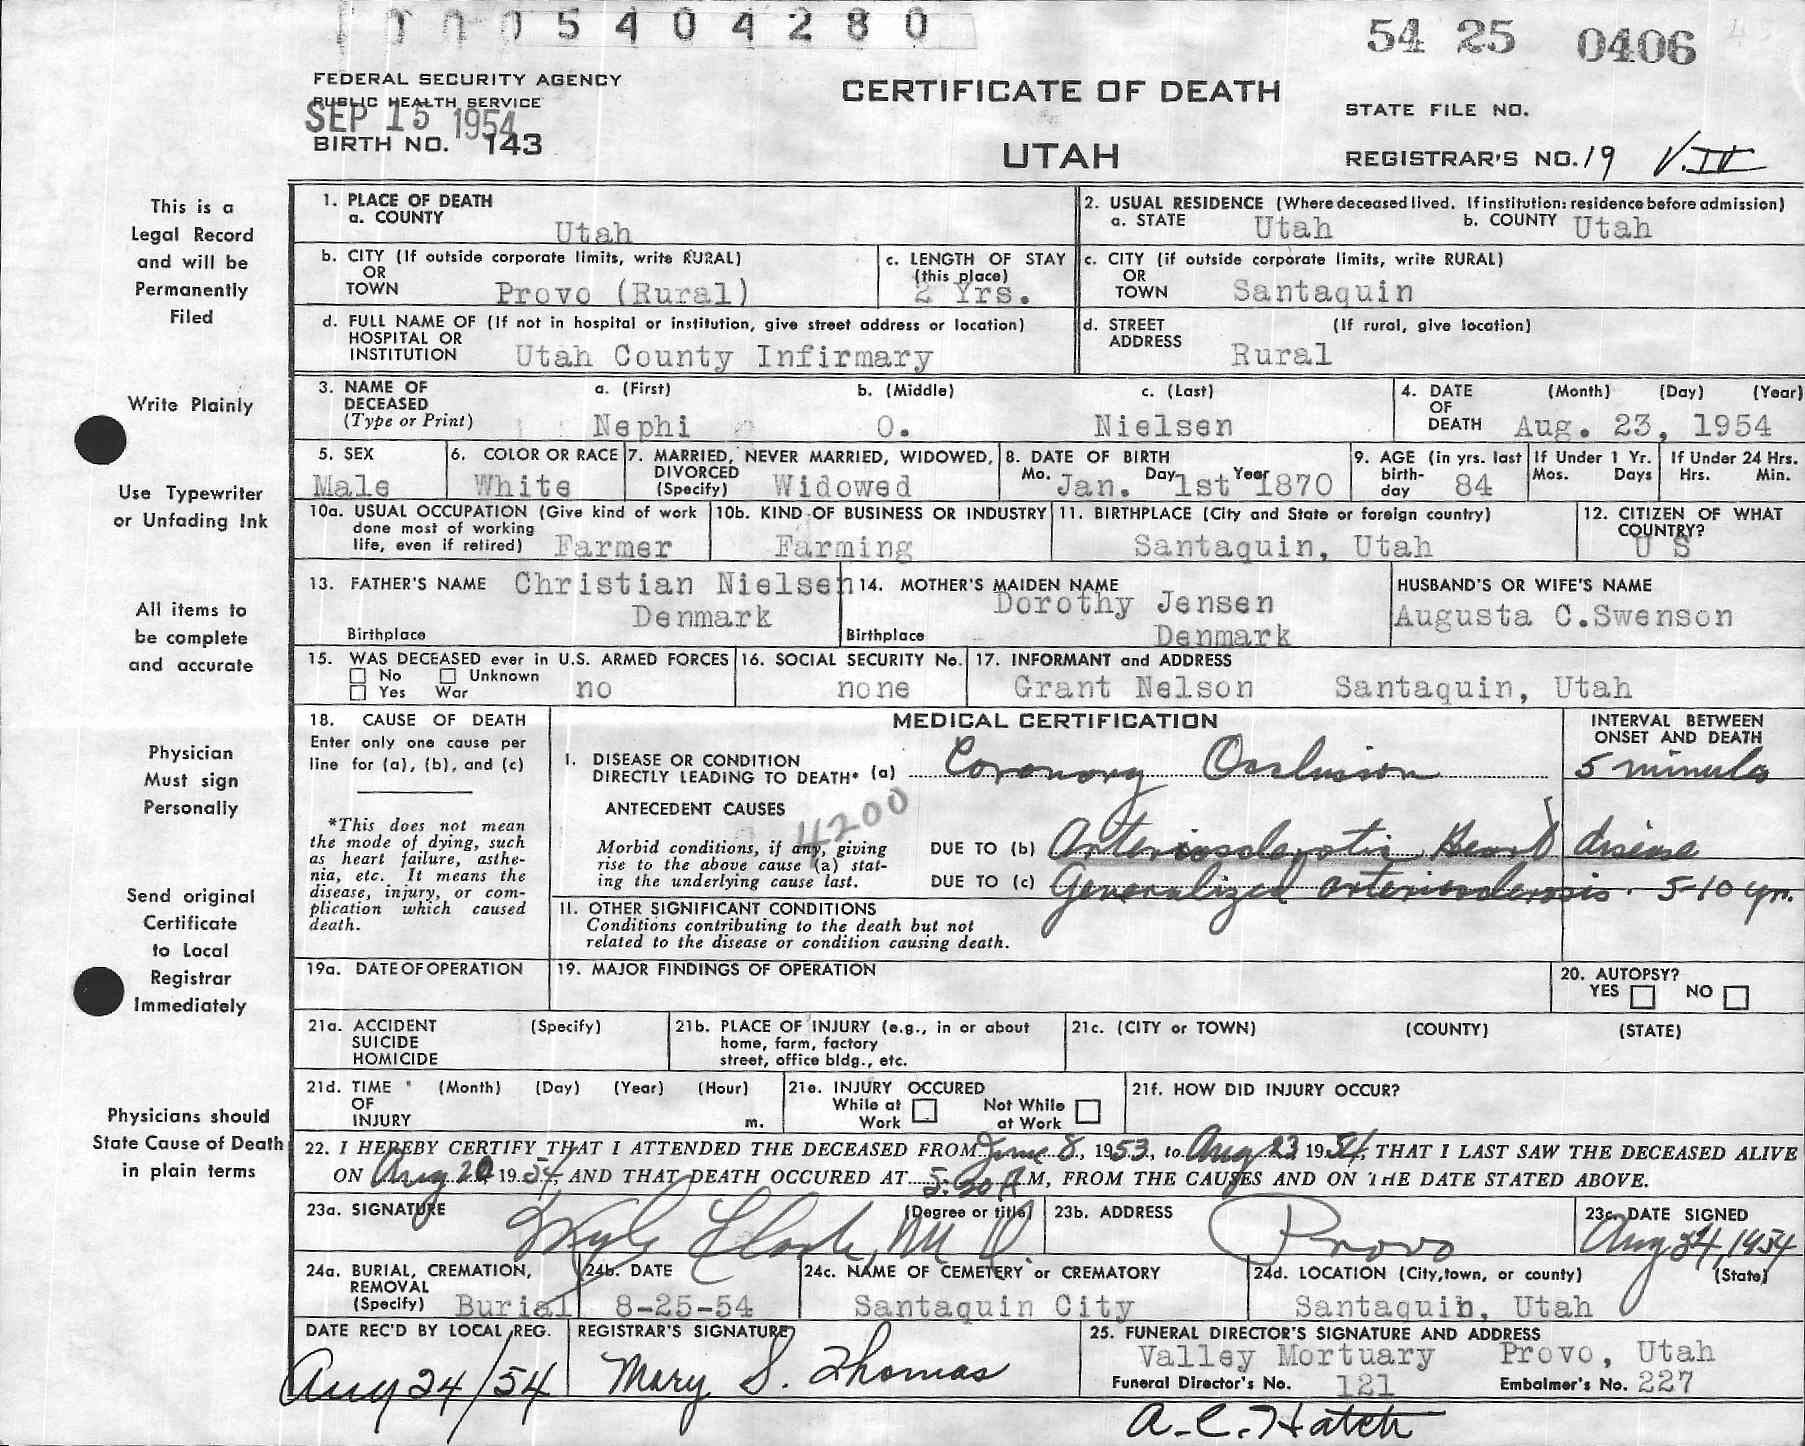 0005404280
54 25 0406
FEDERAL SECURITY AGENCY
PUBLIC HEALTH SERVICE
SEP 15 1954
BIRTH NO. 143
CERTIFICATE OF DEATH
UTAH
STATE FILE NO.
REGISTRAR'S NO. 19 V.IV
This is a
Legal Record
and will be
Permanently
Filed
Write Plainly
Use Typewriter
or Unfading Ink
All items to
be complete
and accurate
Physician
Must sign
Personally
Send original
Certificate
to Local
Registrar
Immediately
Physicians should
State Cause of Death
in plain terms
1. PLACE OF DEATH
a. COUNTY Utah
2. USUAL RESIDENCE (Where deceased lived. If institution: residence before admission)
a. STATE Utah b. COUNTY Utah
b. CITY (If outside corporate limits, write RURAL)
OR
TOWN Provo (Rural)
c. LENGTH OF STAY
(this place)
2 Yrs.
c. CITY (if outside corporate limits, write RURAL)
OR
TOWN Santaquin
d. FULL NAME OF (If not in hospital or institution, give street address or location)
HOSPITAL OR
INSTITUTION Utah County Infirmary
d. STREET (If rural, give location)
ADDRESS Rural
3. NAME OF a. (First) b. (Middle) c. (Last)
DECEASED
(Type or Print) Nephi O. Nielsen
4. DATE (Month) (Day) (Year)
OF
DEATH Aug. 23, 1954
5. SEX
Male
6. COLOR OR RACE
White
7. MARRIED, NEVER MARRIED, WIDOWED,
DIVORCED
(Specify) Widowed
8. DATE OF BIRTH
Mo. Jan. Day 1st Year 1870
9. AGE (in yrs. last
birth-
day 84
If Under 1 Yr.
Mos. Days
If Under 24 Hrs.
Hrs. Min.
10a. USUAL OCCUPATION (Give kind of work
done most of working
life, even if retired) Farmer
10b. KIND OF BUSINESS OR INDUSTRY
Farming
11. BIRTHPLACE (City and State or foreign country)
Santaquin, Utah
12. CITIZEN OF WHAT
COUNTRY?
U S
13. FATHER'S NAME Christian Nielsen
Denmark
Birthplace
14. MOTHER'S MAIDEN NAME
Dorothy Jensen
Birthplace Denmark
HUSBAND'S OR WIFE'S NAME
Augusta C.Swenson
15. WAS DECEASED ever in U.S. ARMED FORCES
No Unknown
Yes War no
16. SOCIAL SECURITY No.
none
17. INFORMANT and ADDRESS
Grant Nelson Santaquin, Utah
18. CAUSE OF DEATH
Enter only one cause per
line for (a), (b), and (c)
*This does not mean
the mode of dying, such
as heart failure, asthe-
nia, etc. It means the
disease, injury, or com-
plication which caused
death.
MEDICAL CERTIFICATION
INTERVAL BETWEEN
ONSET AND DEATH
I. DISEASE OR CONDITION
DIRECTLY LEADING TO DEATH* (a) Coronary Occlusion 5 minutes
ANTECEDENT CAUSES
4200
Morbid conditions, if any, giving
rise to the above cause (a) stat-
ing the underlying cause last.
DUE TO (b) Arteriosclerotic Heart disease
DUE TO (c) Generalized arteriosclerosis. 5-10 yr.
II. OTHER SIGNIFICANT CONDITIONS
Conditions contributing to the death but not
related to the disease or condition causing death.
19a. DATE OF OPERATION
19. MAJOR FINDINGS OF OPERATION
20. AUTOPSY?
YES NO
21a. ACCIDENT (Specify)
SUICIDE
HOMICIDE
21b. PLACE OF INJURY (e.g., in or about
home, farm, factory
street, office bldg., etc.
21c. (CITY or TOWN) (COUNTY) (STATE)
21d. TIME (Month) (Day) (Year) (Hour)
OF
INJURY m.
21e. INJURY OCCURED
While at Not While
Work at Work
21f. HOW DID INJURY OCCUR?
22. I HEREBY CERTIFY THAT I ATTENDED THE DECEASED FROM June 8, 1953, to Aug 23 1954, THAT I LAST SAW THE DECEASED ALIVE
ON Aug 20 1954, AND THAT DEATH OCCURED AT 5:20 A M, FROM THE CAUSES AND ON THE DATE STATED ABOVE.
23a. SIGNATURE (Degree or title)
Clark, M.D.
23b. ADDRESS
Provo
23c. DATE SIGNED
Aug 24, 1954
24a. BURIAL, CREMATION,
REMOVAL
(Specify) Burial
24b. DATE
8-25-54
24c. NAME OF CEMETERY or CREMATORY
Santaquin City
24d. LOCATION (City, town, or county) (State)
Santaquin, Utah
DATE REC'D BY LOCAL REG.
Aug 24/54
REGISTRAR'S SIGNATURE
Mary S. Thomas
25. FUNERAL DIRECTOR'S SIGNATURE AND ADDRESS
Valley Mortuary Provo, Utah
Funeral Director's No. 121 Embalmer's No. 227
A.C. Hatch